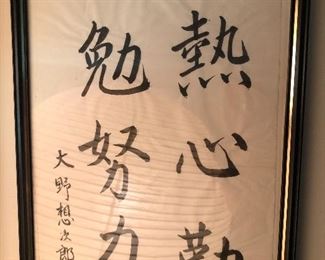 熱心勤
勉努力
大野想次郎